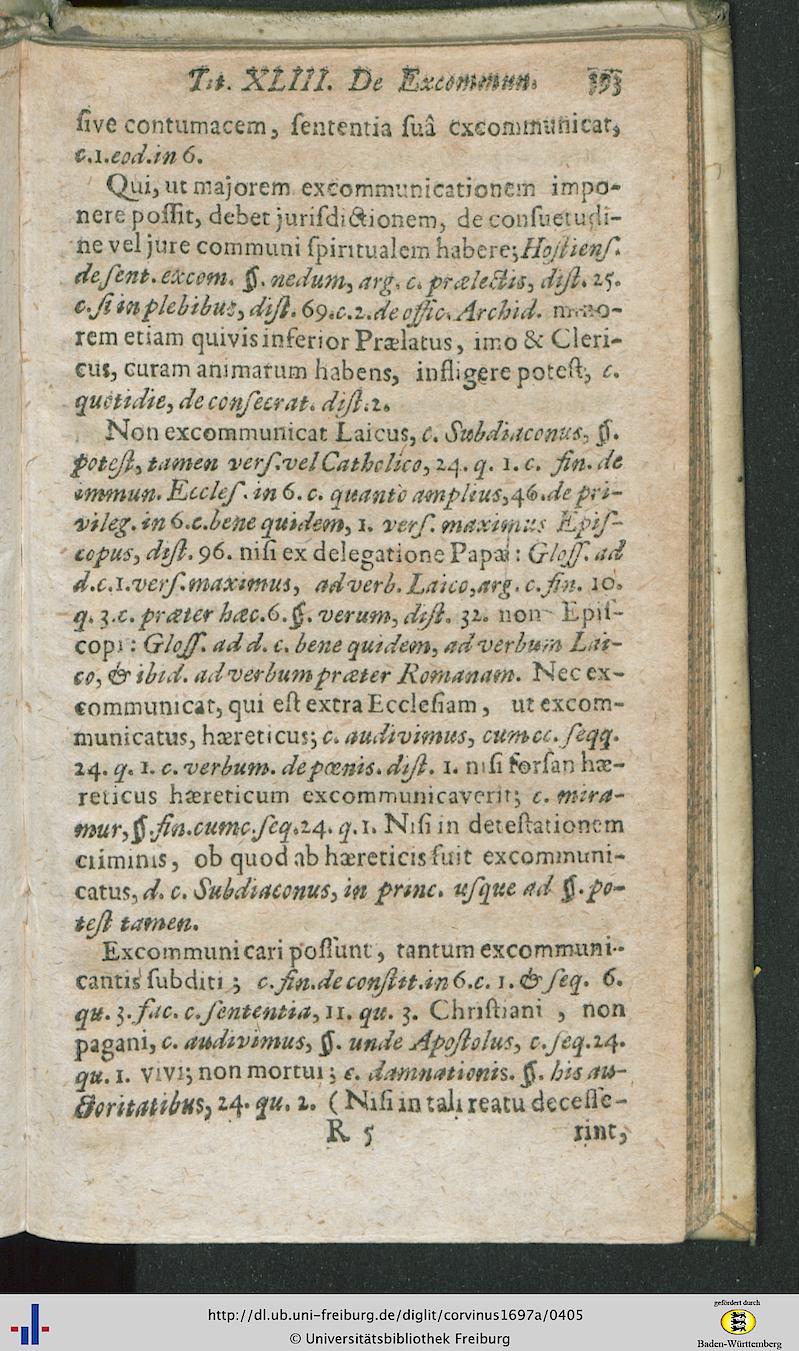 Tit. XLIII. De Excommun. 393
ſive contumacem, ſententia ſuâ excommunicat,
c.1.eod.in 6.
Qui, ut majorem excommunicationem impo-
nere poſſit, debet juriſdictionem, de conſuetudi-
ne vel jure communi ſpiritualem habere; Hoſtienſ.
de ſent. excom. §. nedum, arg. c. prælectis, diſt. 25.
c. ſi in plebibus, diſt. 69. c. 2. de offic. Archid. mino-
rem etiam quivis inferior Prælatus, imo & Cleri-
cus, curam animarum habens, infligere poteſt, c.
quotidie, de conſecrat. diſt. 2.
Non excommunicat Laicus, c. Subdiaconus, §.
poteſt, tamen verſ. vel Catholico, 24. q. 1. c. fin. de
immun. Eccleſ. in 6. c. quanto amplius, 46. de pri-
vileg. in 6. c. bene quidem, 1. verſ. maximus Epiſ-
copus, diſt. 96. niſi ex delegatione Papæ: Gloſſ. ad
d.c.1.verſ. maximus, ad verb. Laico, arg. c. fin. 10.
q. 3. c. præter hæc. 6. §. verum, diſt. 32. non Epiſ-
copi: Gloſſ. ad d. c. bene quidem, ad verbum Lai-
co, & ibid. ad verbum præter Romanam. Nec ex-
communicat, qui eſt extra Eccleſiam, ut excom-
municatus, hæreticus; c. audivimus, cum cc. ſeqq.
24. q. 1. c. verbum. de pœnis. diſt. 1. niſi forſan hæ-
reticus hæreticum excommunicaverit; c. mira-
mur, §. fin. cum c. ſeq. 24. q. 1. Niſi in deteſtationem
criminis, ob quod ab hæreticis fuit excommuni-
catus, d. c. Subdiaconus, in princ. uſque ad §. po-
teſt tamen.
Excommunicari poſſunt, tantum excommuni-
cantis ſubditi; c. fin. de conſtit. in 6. c. 1. & ſeq. 6.
qu. 3. fac. c. ſententia, 11. qu. 3. Chriſtiani, non
pagani, c. audivimus, §. unde Apoſtolus, c. ſeq. 24.
qu. 1. vivi; non mortui; c. damnationis. §. his au-
ctoritatibus, 24. qu. 2. (Niſi in tali reatu deceſſe-
R 5 rint,
http://dl.ub.uni-freiburg.de/diglit/corvinus1697a/0405
© Universitätsbibliothek Freiburg
gefördert durch
Baden-Württemberg